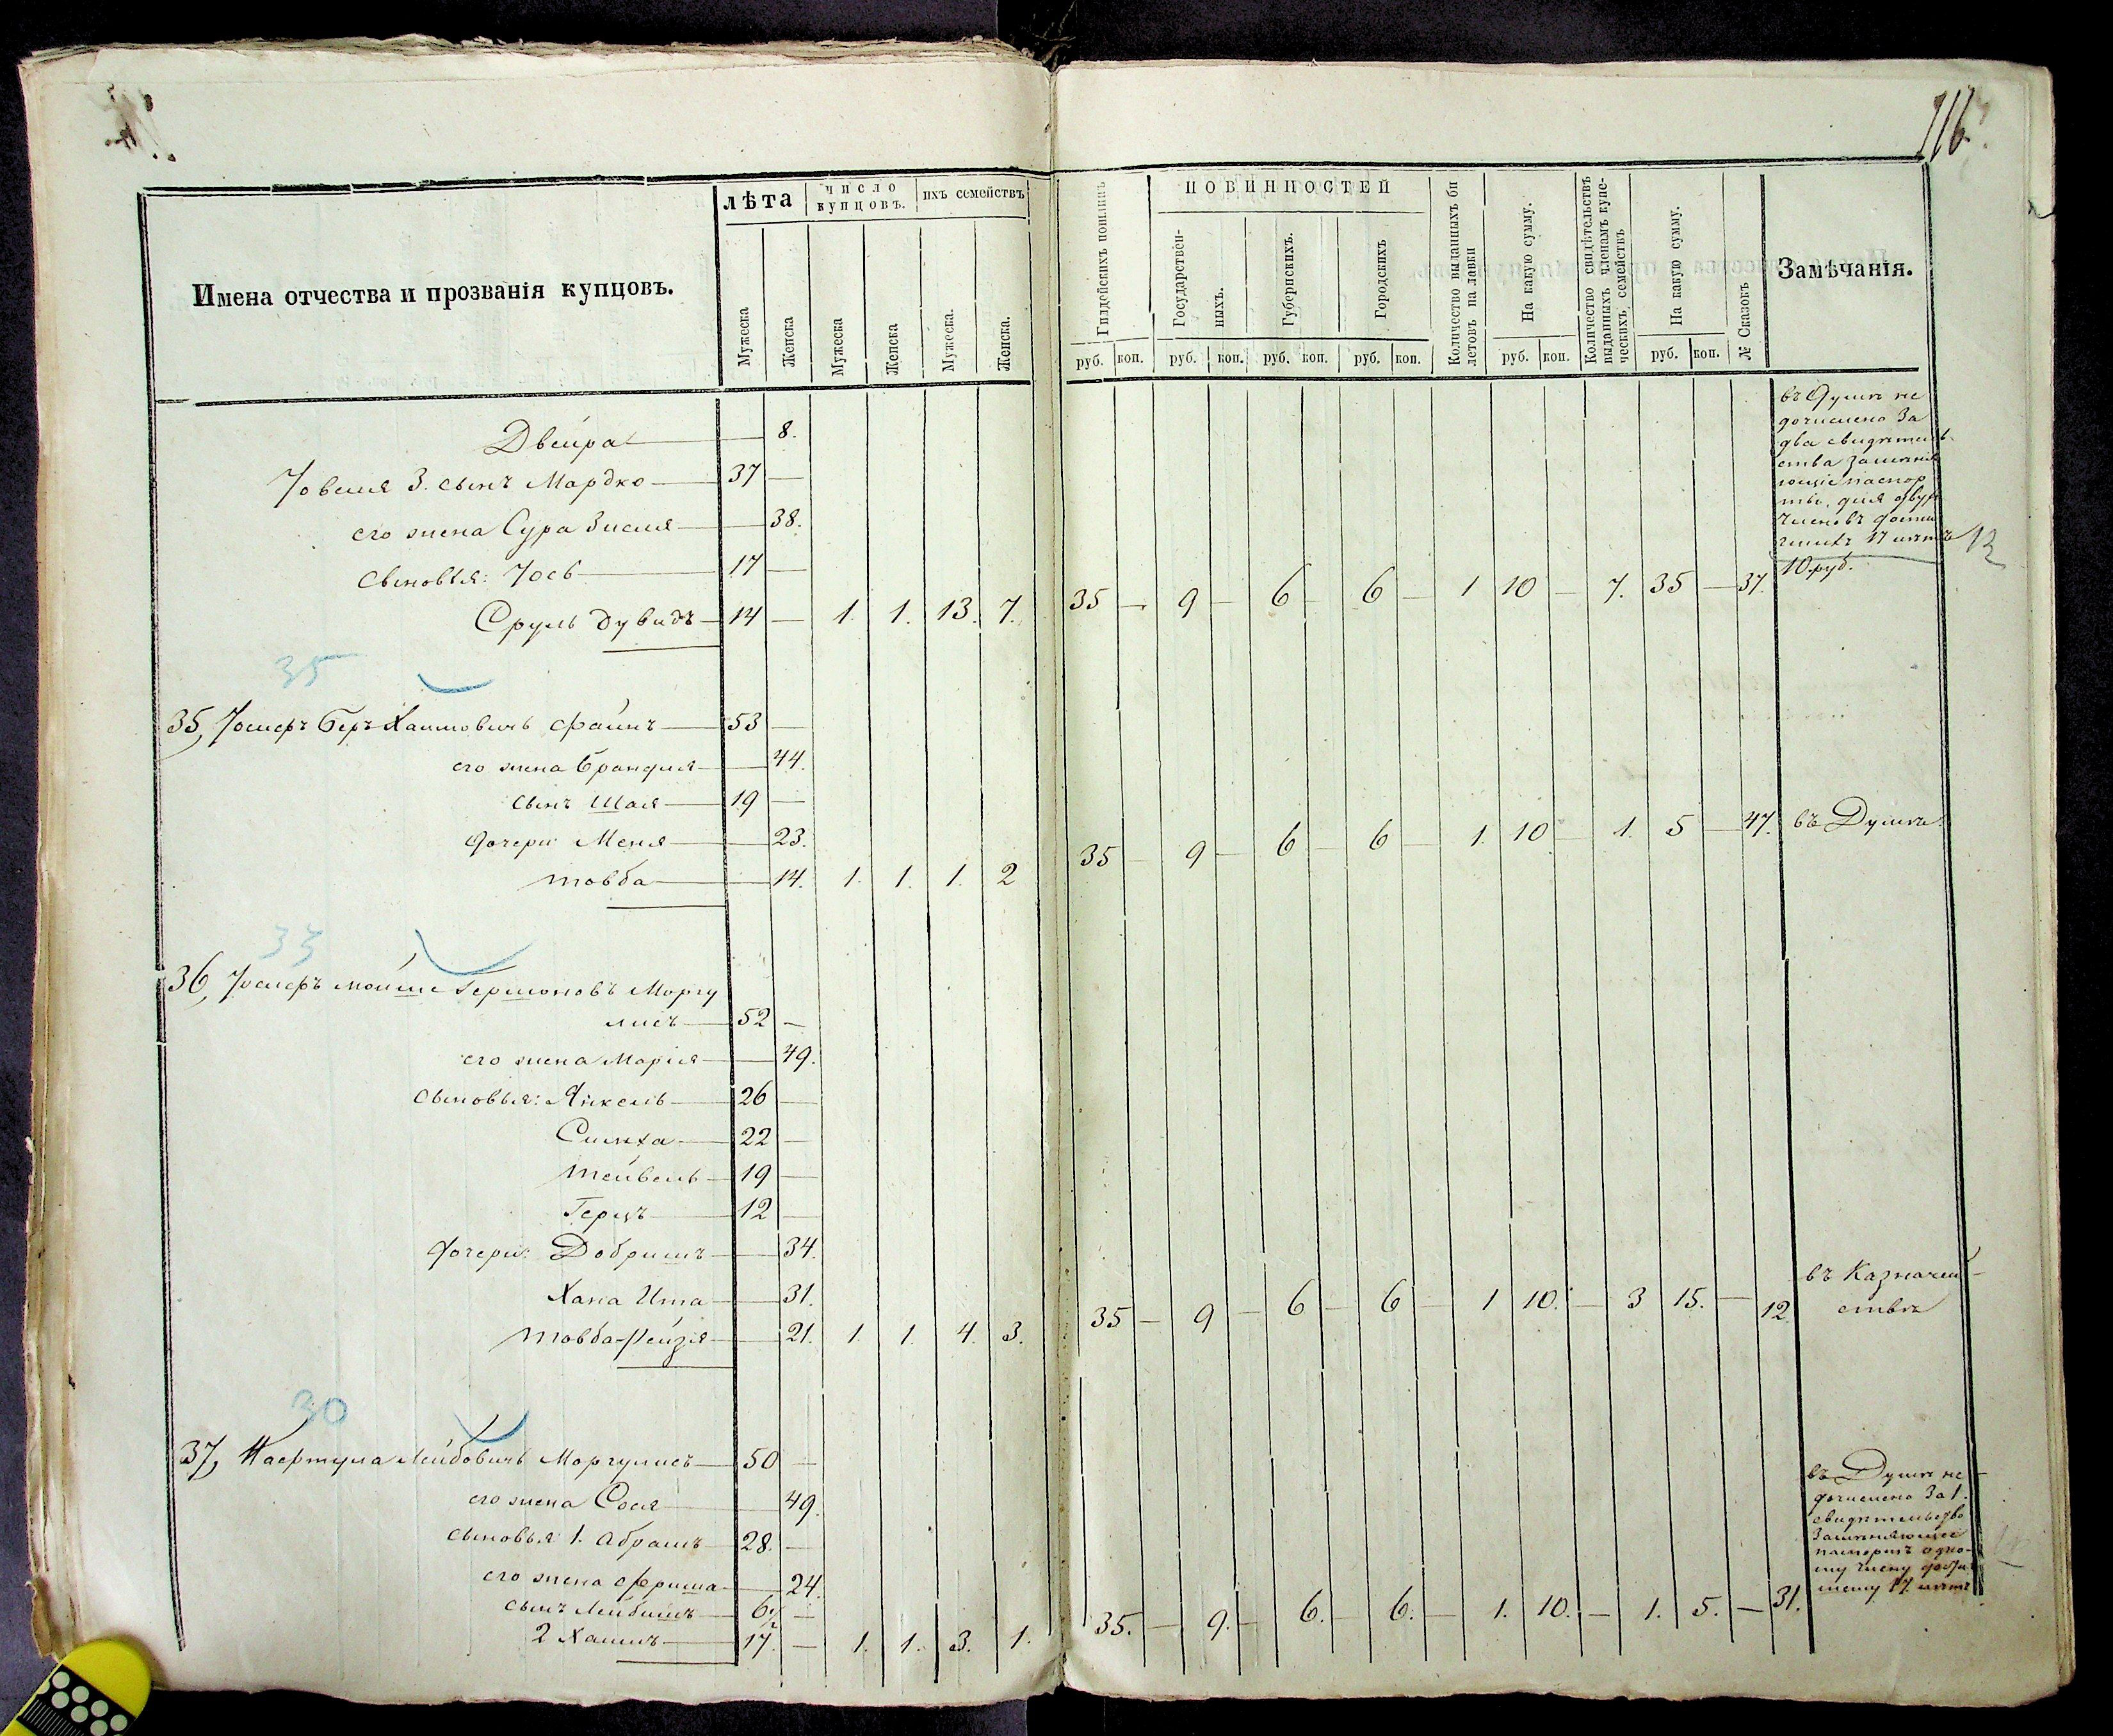 116
Имена отчества и прозванія купцовъ.
лѣта
Мужеска
Женска
число купцовъ.
Мужеска
Женска
ихъ семействъ
Мужеска.
Женска.
Гильдейскихъ пошлинъ
руб. коп.
ПОВИННОСТЕЙ
Государствен-
ныхъ.
руб. коп.
Губернскихъ.
руб. коп.
Городскихъ
руб. коп.
Количество выданныхъ би
летовъ на лавки
На какую сумму.
руб. коп.
Количество свидѣтельствъ
выданныхъ членамъ купе-
ческихъ семействъ
На какую сумму.
руб. коп.
№ Сказокъ
Замѣчанія.
Двейра — 8.
3. сынъ Мордко 37 —
его жена Сура Зисля — 38.
Сыновья: Іось 17 —
Сруль Дувидъ 14 — 1. 1. 13. 7. 35 — 9 — 6 — 6 — 1 10 — 7. 35 — 37.
въ Думѣ не
дочислено За
два свидѣтель
ства замѣня
ющіе паспор
ты, для двухъ
членовъ дости
гшихъ 17 лѣтъ
10 руб.
35
35, Іосиеръ Беръ Хаимовичъ Файнъ 53 —
его жена Брандля — 44.
сынъ Шая 19 —
дочери: Меня — 23.
товба — 14. 1. 1. 1. 2 35 — 9 — 6 — 6 — 1. 10 — 1. 5 — 47. въ Думѣ.
33
36, Мойше Гершоновъ Моргу
лисъ 52 —
его жена Марія — 49.
сыновья: Янкель 26 —
Симха 22 —
тейвель 19 —
Герцъ 12 —
дочери: Добришъ — 34.
Хана Ита — 31.
товба-Рейзя — 21. 1. 1. 4. 3. 35 — 9 — 6 — 6 — 1 10. — 3 15. — 12
въ Казначей-
ствѣ
30
37, Нафтула Лейбовичъ Моргулисъ 50 —
его жена Сося — 49.
сыновья 1. Абрамъ 28. —
его жена Фриша — 24.
сынъ Лейбишъ 6 —
2 Хаимъ 17. — 1. 1. 3. 1. 35. — 9. — 6. — 6. — 1. 10. — 1. 5. — 31.
въ Думѣ не-
дочислено За 1.
свидѣтельство
замѣняющее
паспортъ одно-
му члену дости
шему 17 лѣтъ